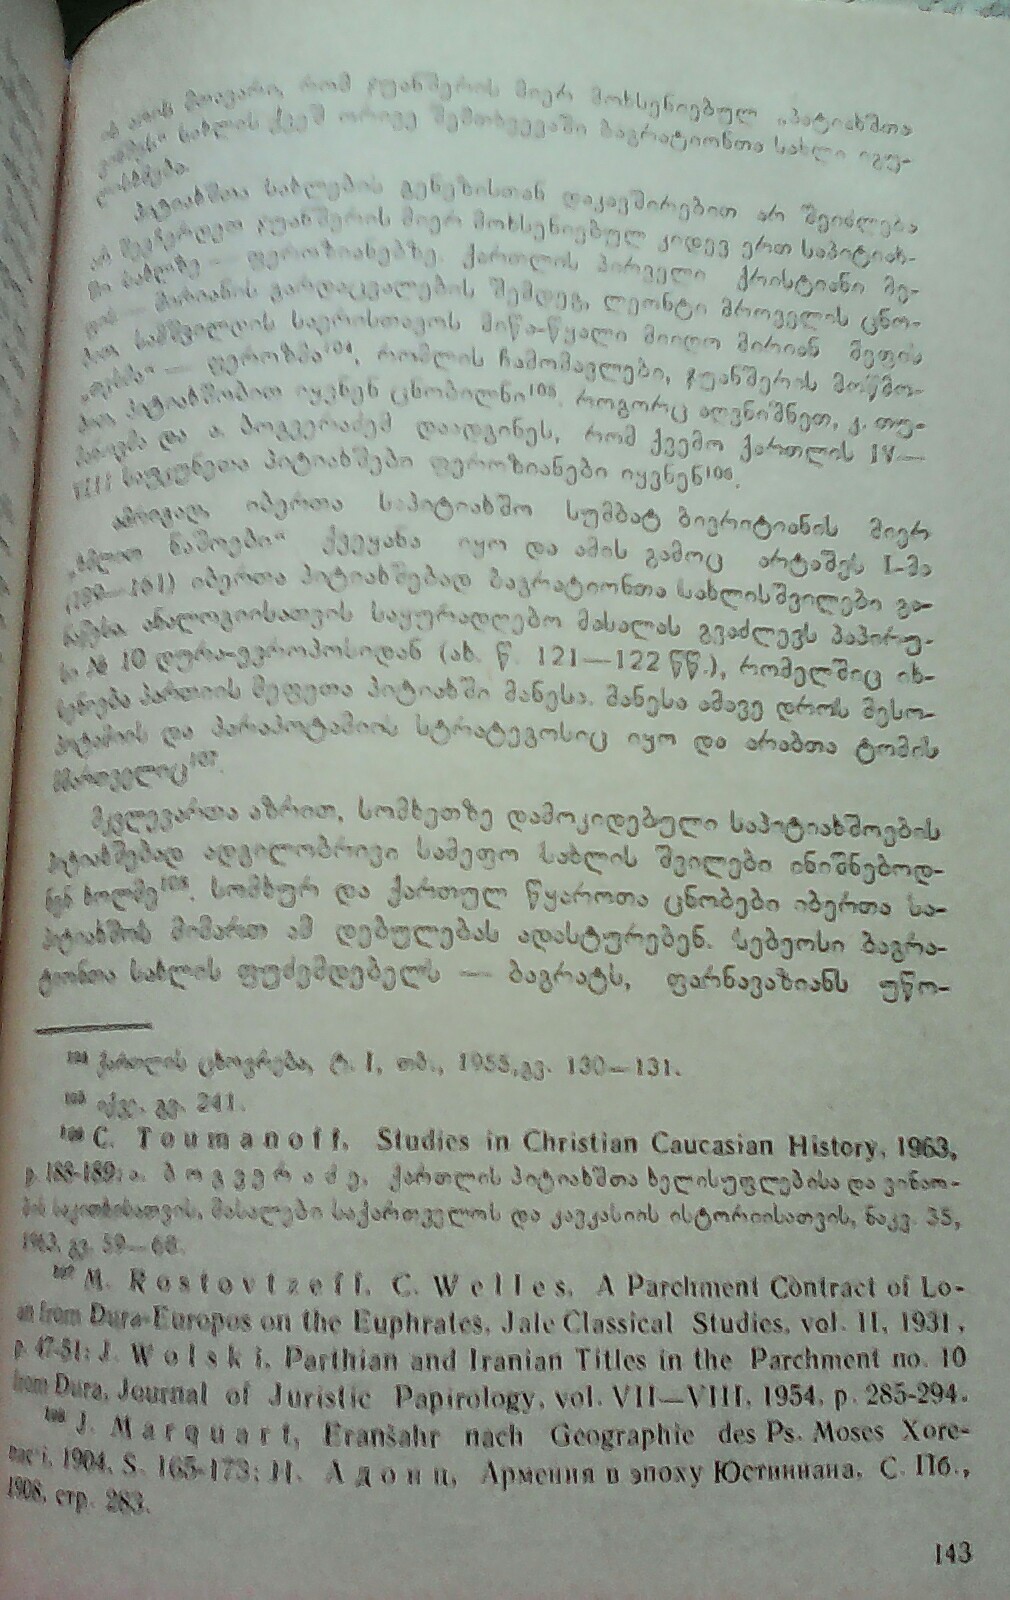 ის არის მთავარი, რომ ჯუანშერის მიერ მოხსენიებულ „პატიახშთა
სახლის ქვეშ ორივე შემთხვევაში ბაგრატიონთა სახლი იგუ-
ლისხმება.
პიტიახშთა სახლების გენეზისთან დაკავშირებით არ შეიძლება
არ შევჩერდეთ ჯუანშერის მიერ მოხსენიებულ კიდევ ერთ საპიტიახ-
შო სახლზე — ფეროზიანებზე. ქართლის პირველი ქრისტიანი მე-
ფის — მირიანის გარდაცვალების შემდეგ, ლეონტი მროველის ცნო-
ბით, სამშვილდის საერისთავოს მიწა-წყალი მიიღო მირიან მეფის
„ — ფეროზმა¹⁰⁴, რომლის ჩამომავლები, ჯუანშერის მოწმო-
ბით, პიტიახშობით იყვნენ ცნობილნი¹⁰⁵. როგორც აღვნიშნეთ, კ. თუ-
მანოვმა და ა. ბოგვერაძემ დაადგინეს, რომ ქვემო ქართლის IV—
VIII საუკუნეთა პიტიახშები ფეროზიანები იყვნენ¹⁰⁶.
ამრიგად, იბერთა საპიტიახშო სუმბატ ბივრიტიანის მიერ
„ხმლით ნაშოები“ ქვეყანა იყო და ამის გამოც არტაშეს I-მა
(189—161) იბერთა პიტიახშებად ბაგრატიონთა სახლისშვილები გა-
ანალოგიისათვის საყურადღებო მასალას გვაძლევს პაპირუ-
სი № 10 დურა-ევროპოსიდან (ახ. წ. 121—122 წწ.), რომელშიც იხ-
სენიება პართიის მეფეთა პიტიახში მანესა. მანესა ამავე დროს მესო-
პოტამიის და პარაპოტამიის სტრატეგოსიც იყო და არაბთა ტომის
მმართველიც¹⁰⁷.
მკვლევართა აზრით, სომხეთზე დამოკიდებული საპიტიახშოების
პიტიახშებად ადგილობრივი სამეფო სახლის შვილები ინიშნებოდ-
ნენ ხოლმე¹⁰⁸. სომხურ და ქართულ წყაროთა ცნობები იბერთა სა-
პიტიახშოს მიმართ ამ დებულებას ადასტურებენ. სებეოსი ბაგრა-
ტიონთა სახლის ფუძემდებელს — ბაგრატს, ფარნავაზიანს უწო-
¹⁰⁴ ქართლის ცხოვრება, ტ. I, თბ., 1955, გვ. 130—131.
¹⁰⁵ იქვე, გვ. 241.
¹⁰⁶ C. Toumanoff, Studies in Christian Caucasian History, 1963,
p. 188-189; ა. ბოგვერაძე, ქართლის პიტიახშთა ხელისუფლებისა და ვინაო-
ბის საკითხისათვის, მასალები საქართველოს და კავკასიის ისტორიისათვის, ნაკვ. 35,
1963, გვ. 59—60.
¹⁰⁷ M. Rostovtzeff, C. Welles, A Parchment Contract of Lo-
an from Dura-Europos on the Euphrates, Jale Classical Studies, vol. II, 1931,
p. 47-51; J. Wolski, Parthian and Iranian Titles in the Parchment no. 10
from Dura, Journal of Juristic Papirology, vol. VII—VIII, 1954, p. 285-294.
¹⁰⁸ J. Marquart, Eranšahr nach Geographie des Ps. Moses Xore-
nac'i, 1904, S. 165-173; Н. Адонц, Армения в эпоху Юстиниана, С. Пб.,
1908, стр. 283.
143